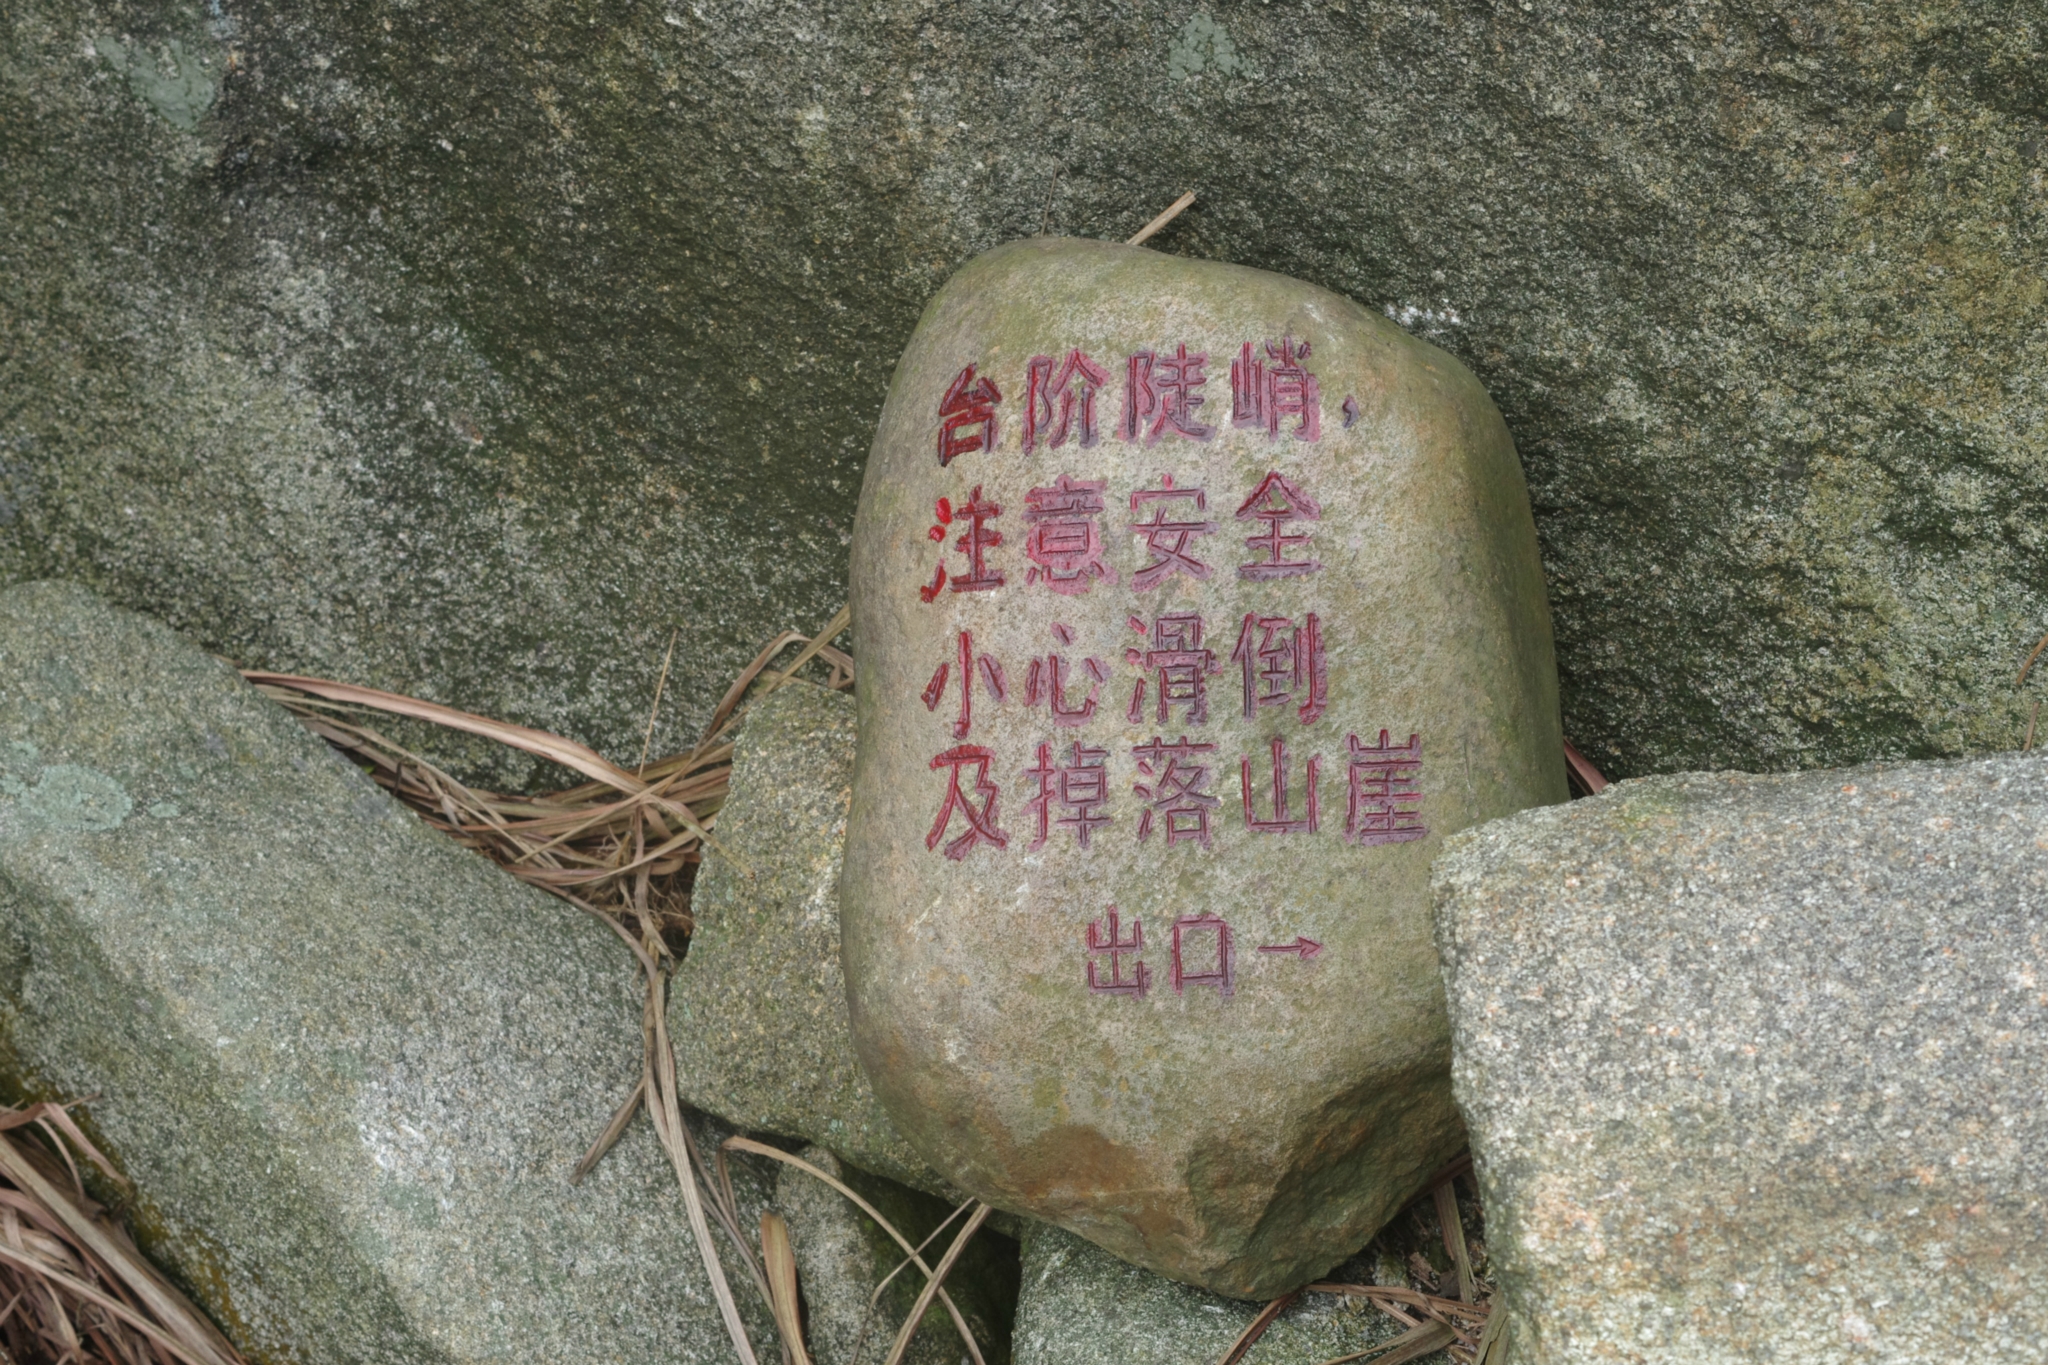 台阶陡峭，
注意安全
小心滑倒
及掉落山崖
出口→